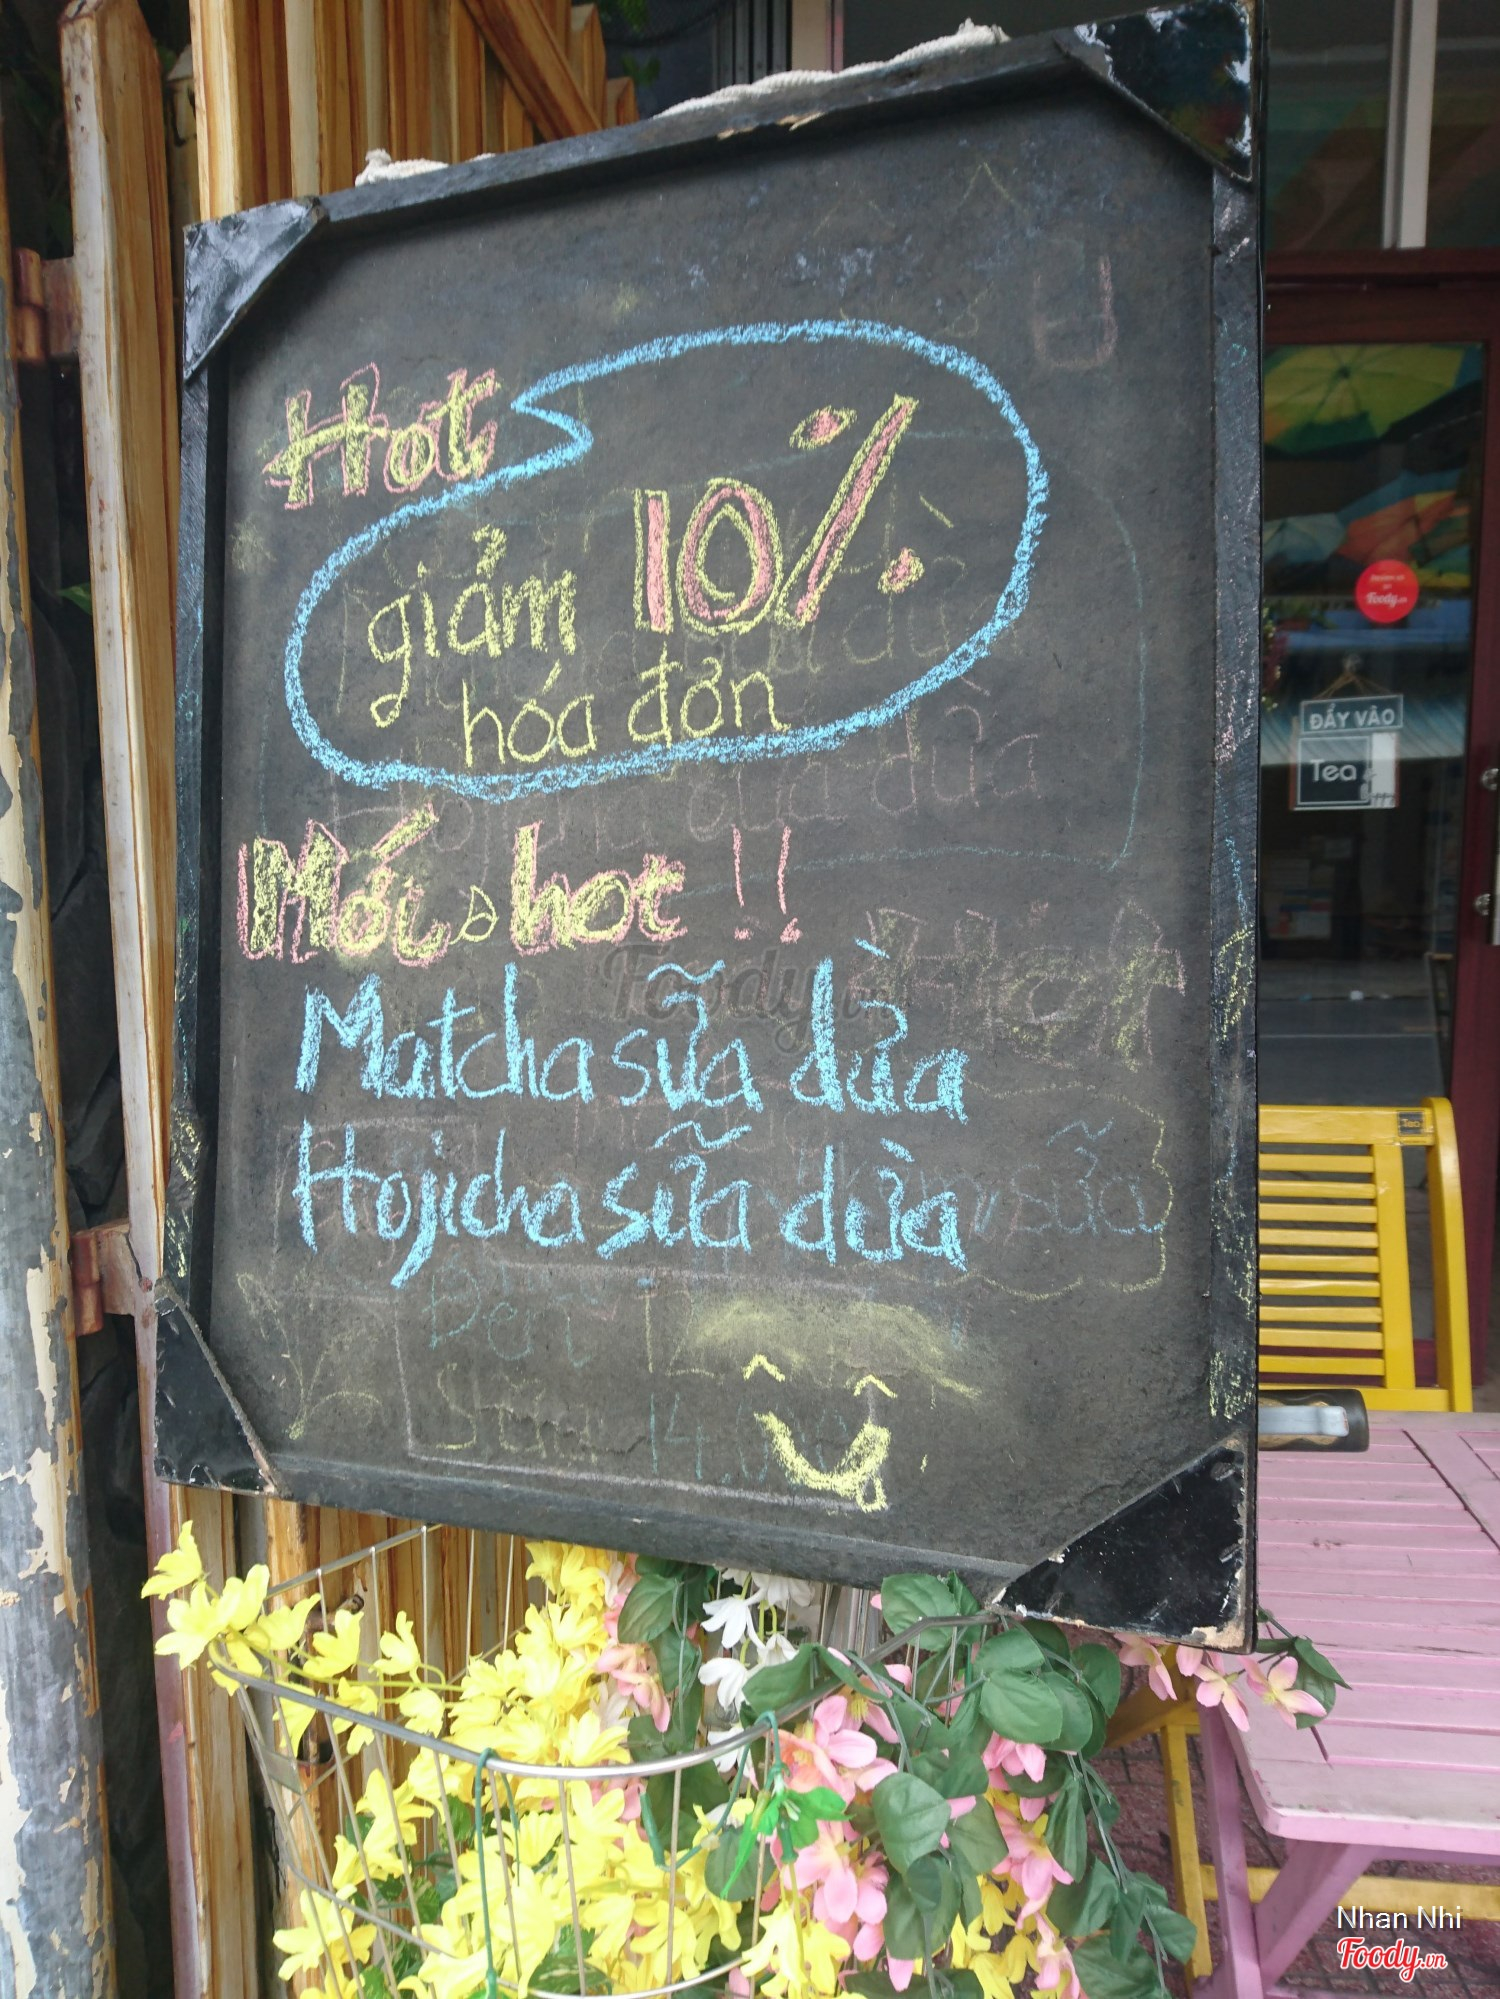 Hot
giảm 10%
hóa đơn
Mới & hot !!
Matcha sữa dừa
Hojicha sữa dừa
ĐẨY VÀO
Tea
Foody.vn
Foody.vn
Nhan Nhi
Foody.vn